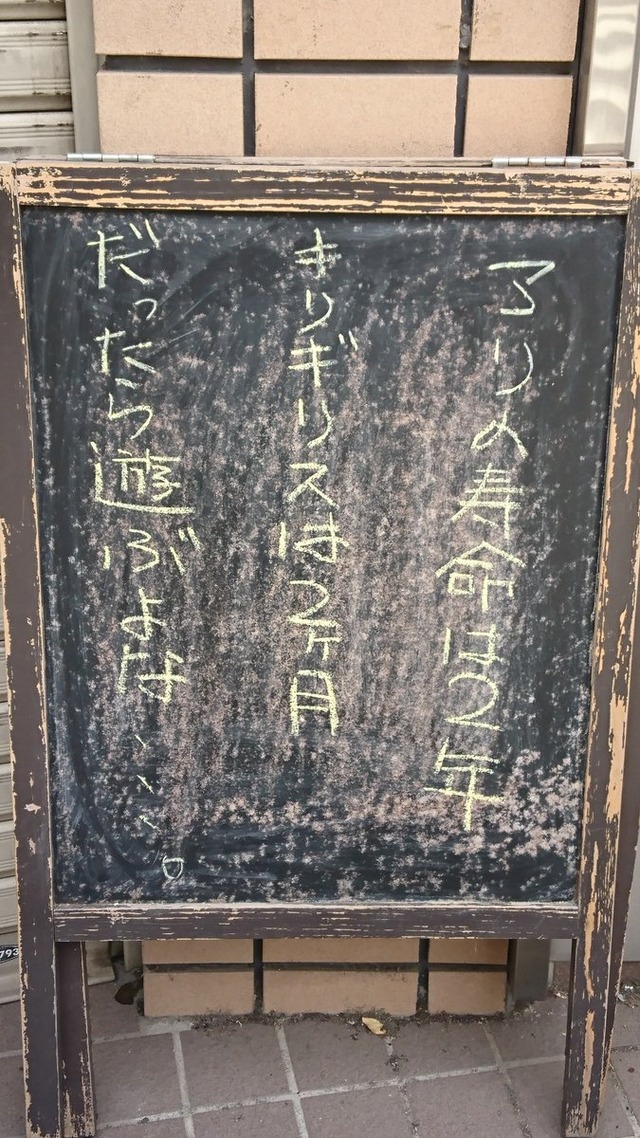 アリの寿命は2年
キリギリスは2ヶ月
だったら遊ぶよな、、、、。
793